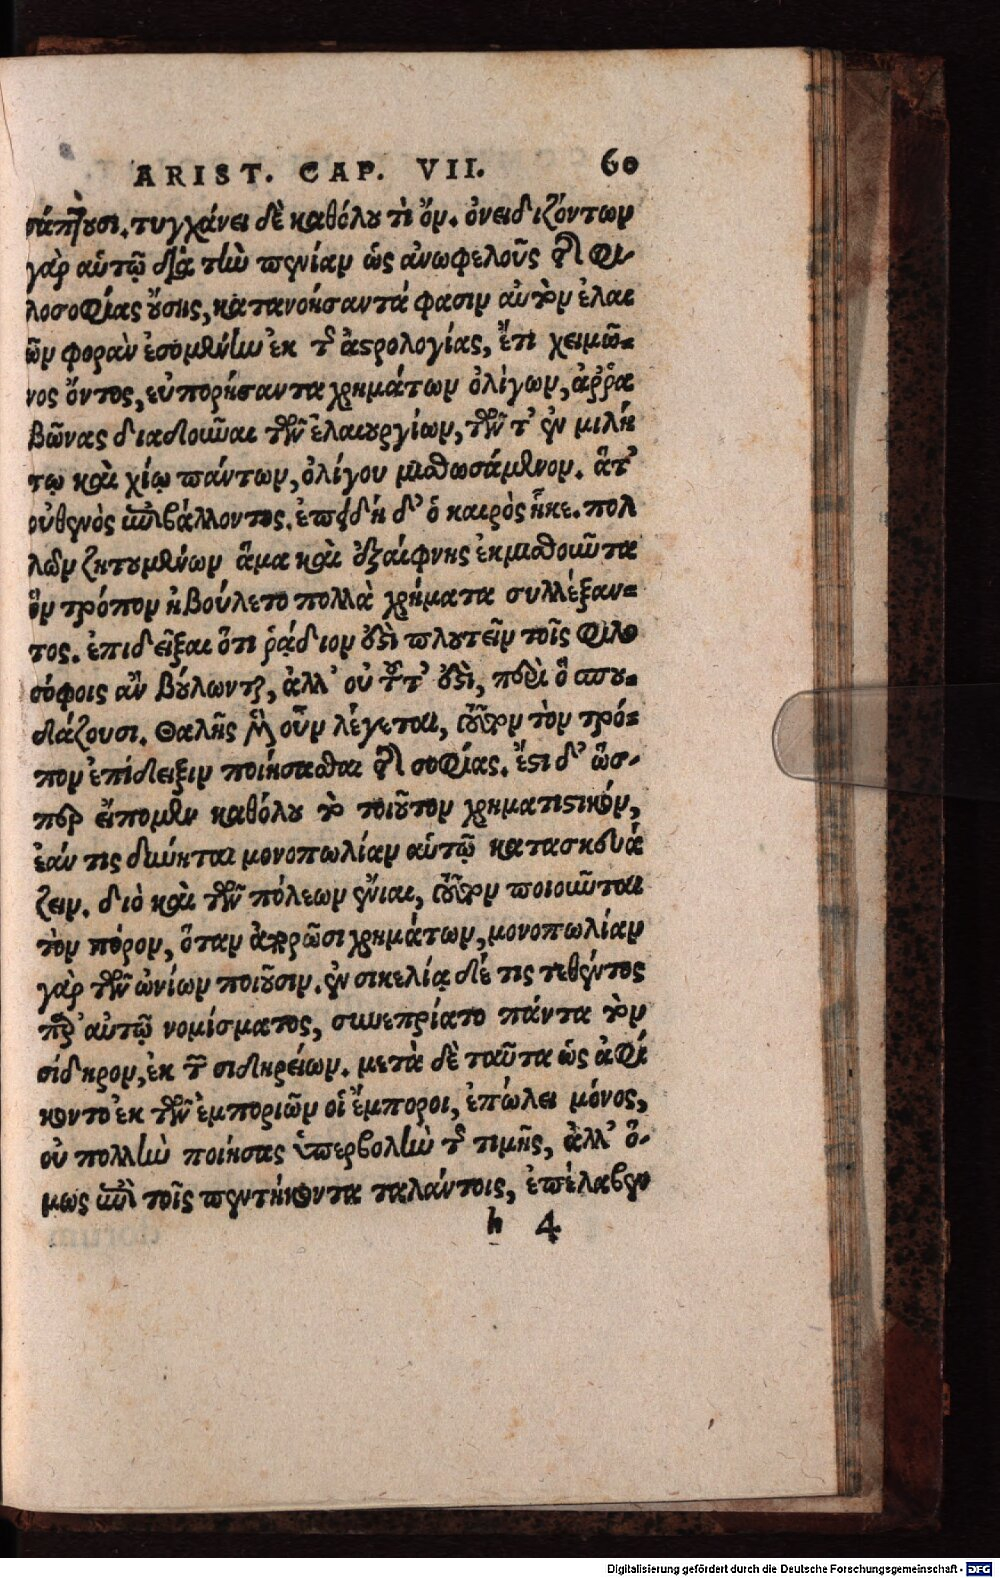 ARIST. CAP. VII. 60
σάπτουσι. τυγχάνει δὲ καθόλου τὶ ὄν. ὀνειδιζόντων
γὰρ αὑτῷ διὰ τὴν πενίαν ὡς ἀνωφελοῦς τῆς φι-
λοσοφίας οὔσης, κατανοήσαντά φασιν αὐτὸν ἐλαι
ῶν φορὰν ἐσομένην ἐκ τῆς ἀστρολογίας, ἔτι χειμῶ-
νος ὄντος, εὐπορήσαντα χρημάτων ὀλίγων, ἀῤῥα
βῶνας διαδοῦναι τῶν ἐλαιουργίων, τῶν τ' ἐν μιλή
τῳ καὶ χίῳ πάντων, ὀλίγου μισθωσάμενον. ἅτ'
οὐθενὸς ἐπιβάλλοντος. ἐπειδὴ δ' ὁ καιρὸς ἧκε. πολ
λῶν ζητουμένων ἅμα καὶ ἐξαίφνης ἐκμισθοῦντα
ὃν τρόπον ἠβούλετο πολλὰ χρήματα συλλέξαν-
τος. ἐπιδεῖξαι ὅτι ῥᾴδιον ἐστὶ πλουτεῖν τοῖς φιλο
σόφοις ἂν βούλωνται, ἀλλ' οὐ τοῦτ' ἐστὶ, περὶ ὃ σπου-
δάζουσι. Θαλῆς μὲν οὖν λέγεται, τοῦτον τὸν τρό-
πον ἐπίδειξιν ποιήσασθαι τῆς σοφίας. ἔστι δ' ὥσ-
περ εἴπομεν καθόλου τὸ τοιοῦτον χρηματιστικόν,
ἐάν τις δύνηται μονοπωλίαν αὑτῷ κατασκευά
ζειν. διὸ καὶ τῶν πόλεων ἔνιαι, τοῦτον ποιοῦνται
τὸν πόρον, ὅταν ἀπορῶσι χρημάτων, μονοπωλίαν
γὰρ τῶν ὠνίων ποιοῦσιν. ἐν σικελίᾳ δέ τις τεθέντος
παρ' αὐτῷ νομίσματος, συνεπρίατο πάντα τὸν
σίδηρον, ἐκ τῶν σιδηρείων. μετὰ δὲ ταῦτα ὡς ἀφί
κοντο ἐκ τῶν ἐμποριῶν οἱ ἔμποροι, ἐπώλει μόνος,
οὐ πολλὴν ποιήσας ὑπερβολὴν τῆς τιμῆς, ἀλλ' ὅ-
μως ἐπὶ τοῖς πεντήκοντα ταλάντοις, ἐπέλαβεν
h 4
Digitalisierung gefördert durch die Deutsche Forschungsgemeinschaft - DFG